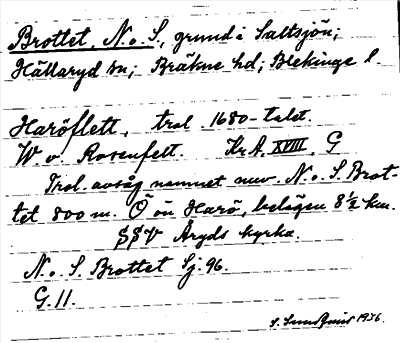 Brottet, N. o. S., grund i Saltsjön;
Hällaryd sn; Bräkne hd; Blekinge l.
Haröflett, trol 1680-talet.
W. v. Rosenfelt. Kr.A. XVIII. G
Trol. avsåg namnet nuv. N. o. S. Brot-
tet 800 m. Ö ön Harö, belägen 8 ½ km.
SSV Åryds kyrka.
N. o. S. Brottet Sj. 96.
G. 11.
1936.